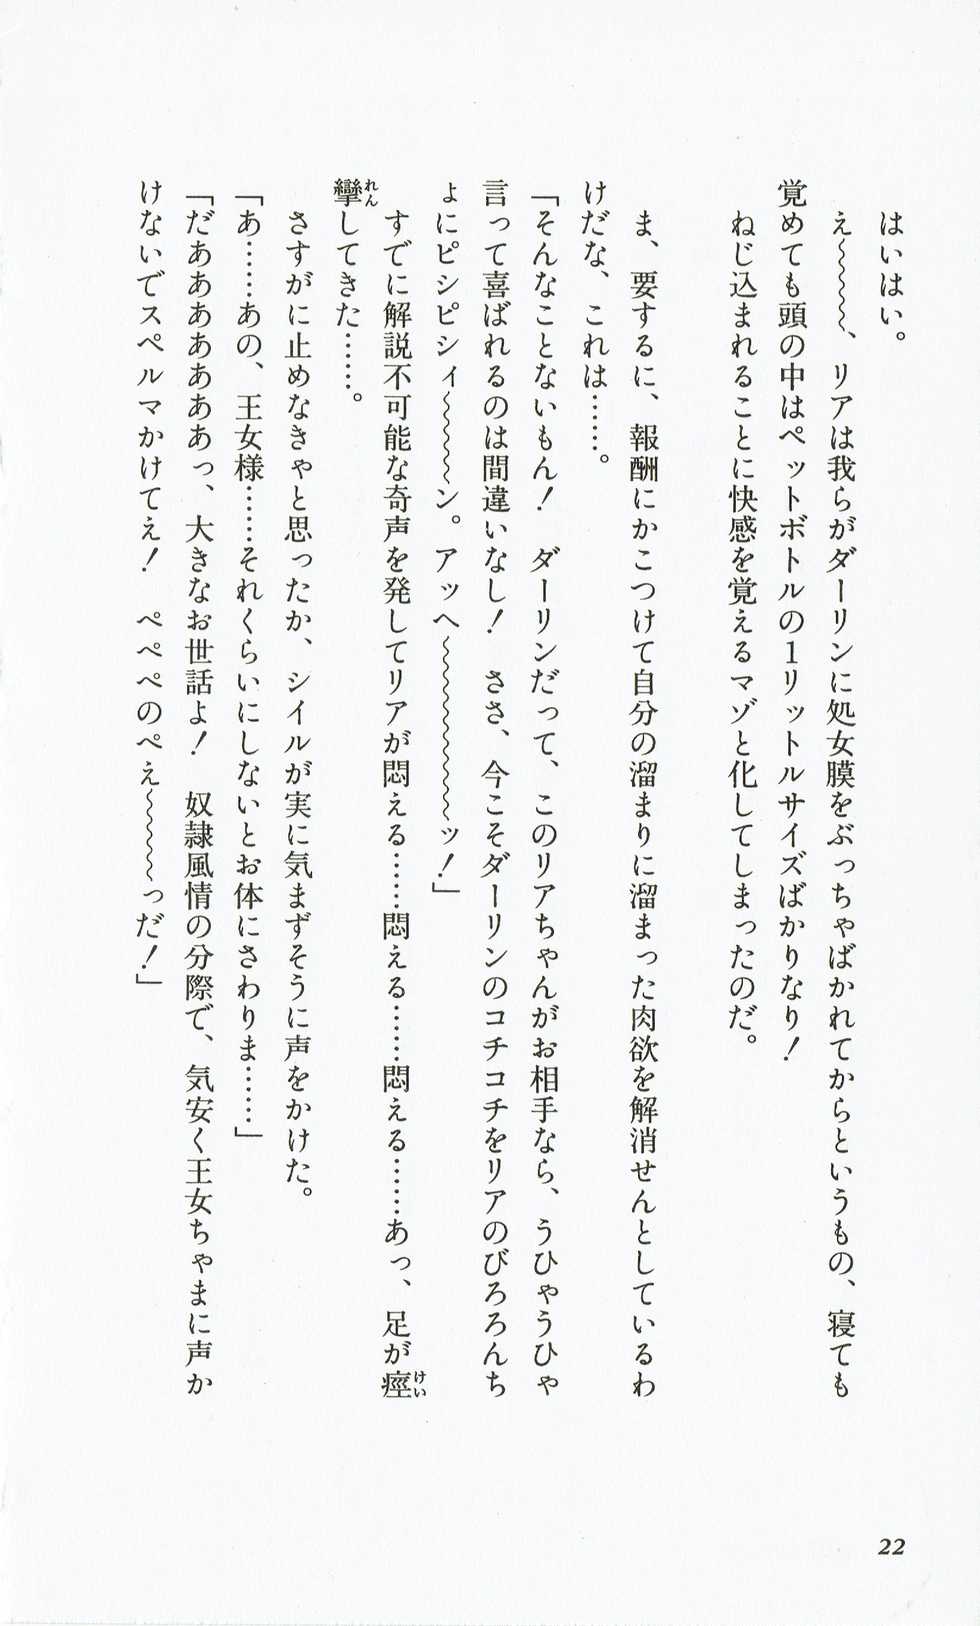 はいはい。
え～～～～、リアは我らがダーリンに処女膜をぶっちゃばかれてからというもの、寝ても
覚めても頭の中はペットボトルの1リットルサイズばかりなり！
ねじ込まれることに快感を覚えるマゾと化してしまったのだ。
ま、要するに、報酬にかこつけて自分の溜まりに溜まった肉欲を解消せんとしているわ
けだな、これは……。
「そんなことないもん！　ダーリンだって、このリアちゃんがお相手なら、うひゃうひゃ
言って喜ばれるのは間違いなし！　ささ、今こそダーリンのコチコチをリアのびろろんち
ょにピシピシィ～～～～ン。アッヘ～～～～～～～～ッ！」
すでに解説不可能な奇声を発してリアが悶える……悶える……悶える……あっ、足が痙けい
攣れんしてきた……。
さすがに止めなきゃと思ったか、シイルが実に気まずそうに声をかけた。
「あ……あの、王女様……それくらいにしないとお体にさわりま……」
「だああああああっ、大きなお世話よ！　奴隷風情の分際で、気安く王女ちゃまに声か
けないでスペルマかけてえ！　ぺぺぺのぺえ～～～～～っだ！」
22